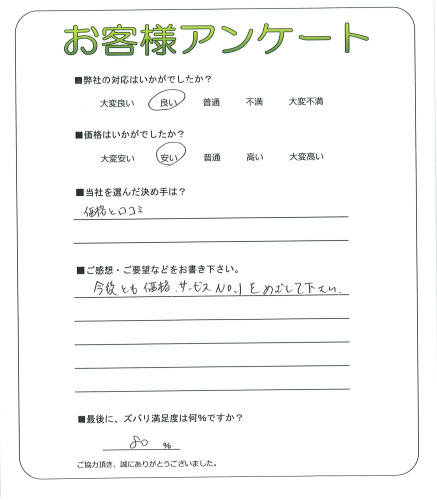 お客様アンケート
■弊社の対応はいかがでしたか?
大変良い 良い 普通 不満 大変不満
■価格はいかがでしたか?
大変安い 安い 普通 高い 大変高い
■当社を選んだ決め手は?
価格と口コミ
■ご感想・ご要望などをお書き下さい。
今後とも価格、サービスNO.1をめざして下さい。
■最後に、ズバリ満足度は何%ですか?
80 %
ご協力頂き、誠にありがとうございました。